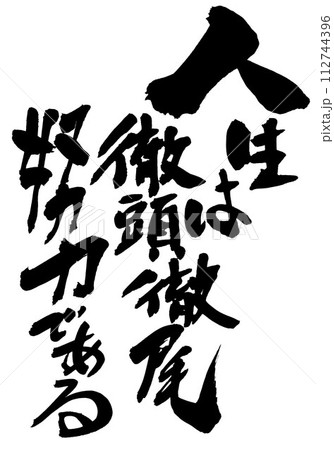 人生は
徹頭徹尾
努力である
pixta.jp - 112744396